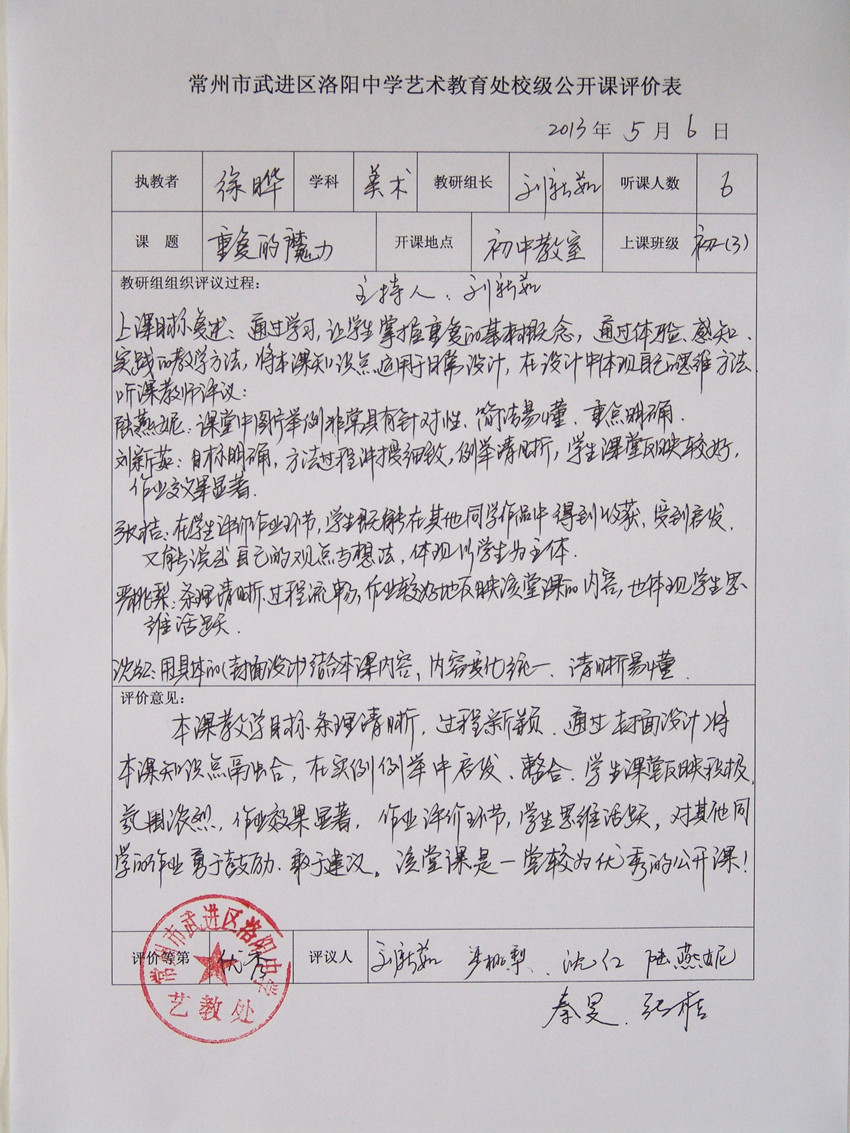 常州市武进区洛阳中学艺术教育处校级公开课评价表
2013 年 5 月 6 日
执教者 徐晔 学科 美术 教研组长 刘新茹 听课人数 6
课 题 重复的魔力 开课地点 初中教室 上课班级 初一(3)
教研组组织评议过程： 主持人：刘新茹
上课目标集述：通过学习，让学生掌握重复的基本概念，通过体验、感知、
实践的教学方法，将本课知识点运用于日常设计，在设计中体现自己的思维方法.
听课教师评议：
陆燕妮：课堂中图片举例非常具有针对性、简洁易懂、重点明确.
刘新茹：目标明确，方法过程讲授细致，例举清晰，学生课堂反映较好，
作业效果显著.
张桔：在学生评价作业环节，学生既能在其他同学作品中得到收获，受到启发，
又能说出自己的观点与想法，体现以学生为主体.
严桃梨：条理清晰、过程流畅，作业较好地反映该堂课的内容，也体现学生思
维活跃.
沈红：用具体的(封面设计)结合本课内容，内容变化统一、清晰易懂.
评价意见：
本课教学目标条理清晰，过程新颖.通过封面设计将
本课知识点融合，在实例例举中启发、整合.学生课堂反映积极，
氛围浓烈，作业效果显著，作业评价环节，学生思维活跃，对其他同
学的作业勇于鼓励、敢于建议。该堂课是一堂较为优秀的公开课！
评价等第 优秀 评议人 刘新茹 严桃梨、沈红 陆燕妮
秦旻、张桔
常州市武进区洛阳中学
艺教处